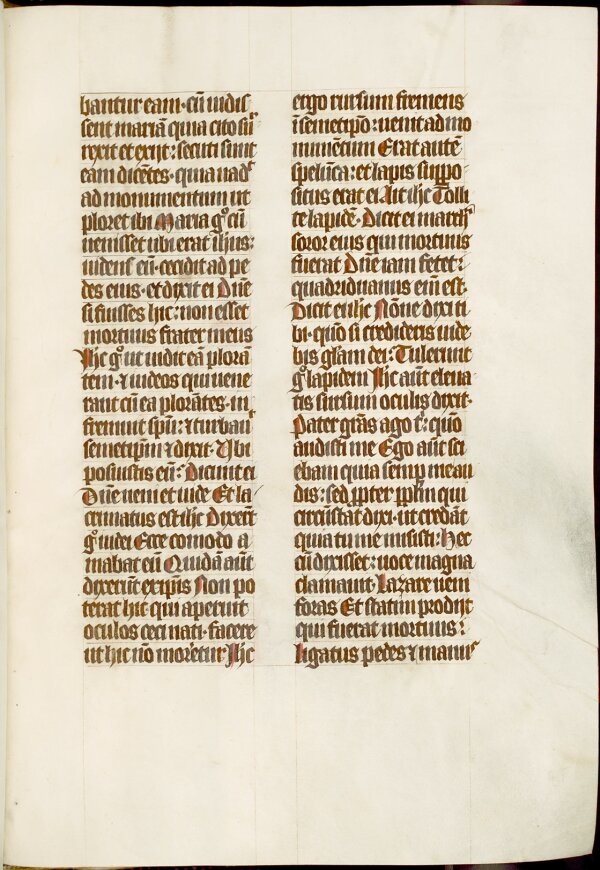 bantur eam · cū uidis
sent mariā quia cito sur
rexit et exijt : secuti sunt
eam dicētes · quia uadit
ad monumentum ut
ploret ibi Maria gͦ cū
uenisset ubi erat ihūs :
uidens eū · cecidit ad pe
des eius · et dixit ei Dn̄e
si fuisses hic : non esset
mortuus frater meus
Ihc gͦ ut uidit eā plorā
tem · ⁊ iudeos qui uene
rant cū ea plorātes · in
fremuit spū : ⁊ turbauit
semetipm̄ ⁊ dixit · Ubi
posuistis eū : Dicunt ei
Dn̄e ueni et uide Et la
crimatus est ihc Dixerūt
gͦ iudei Ecce comodo a
mabat eū Quidā aūt
dixerūt ex ip̄is Non po
terat hic qui aperuit
oculos ceci nati · facere
ut hic nō moretur Ihc
ergo rursum fremens
ī semetip̄o : uenit ad mo
numētum Erat autē
spelūca : et lapis suppo
situs erat ei Ait ihc Tolli
te lapidē · Dicit ei martha
soror eius qui mortuus
fuerat Dn̄e iam fetet :
quadriduanus eīm est ·
Dicit ei ihc Nōne dixi ti
bi · quō si credideris uide
bis glām dei : Tulerunt
gͦ lapidem Ihc aūt eleua
tis sursum oculis dixit ·
Pater grās ago tͥ : quō
audisti me Ego aūt sci
ebam quia semp̱ me au
dis : sed ꝓpter pp̄lm qui
circūstat dixi · ut credāt
quia tu me misisti : Hec
cū dixisset : uoce magna
clamauit · Lazare ueni
foras Et statim prodijt
qui fuerat mortuus :
ligatus pedes ⁊ manus